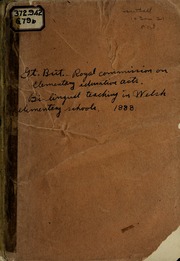 372.942
G79b
Gt. Brit. Royal commission on
Elementary education acts.
Bi-lingual teaching in Welsh
elementary schools. 1888.